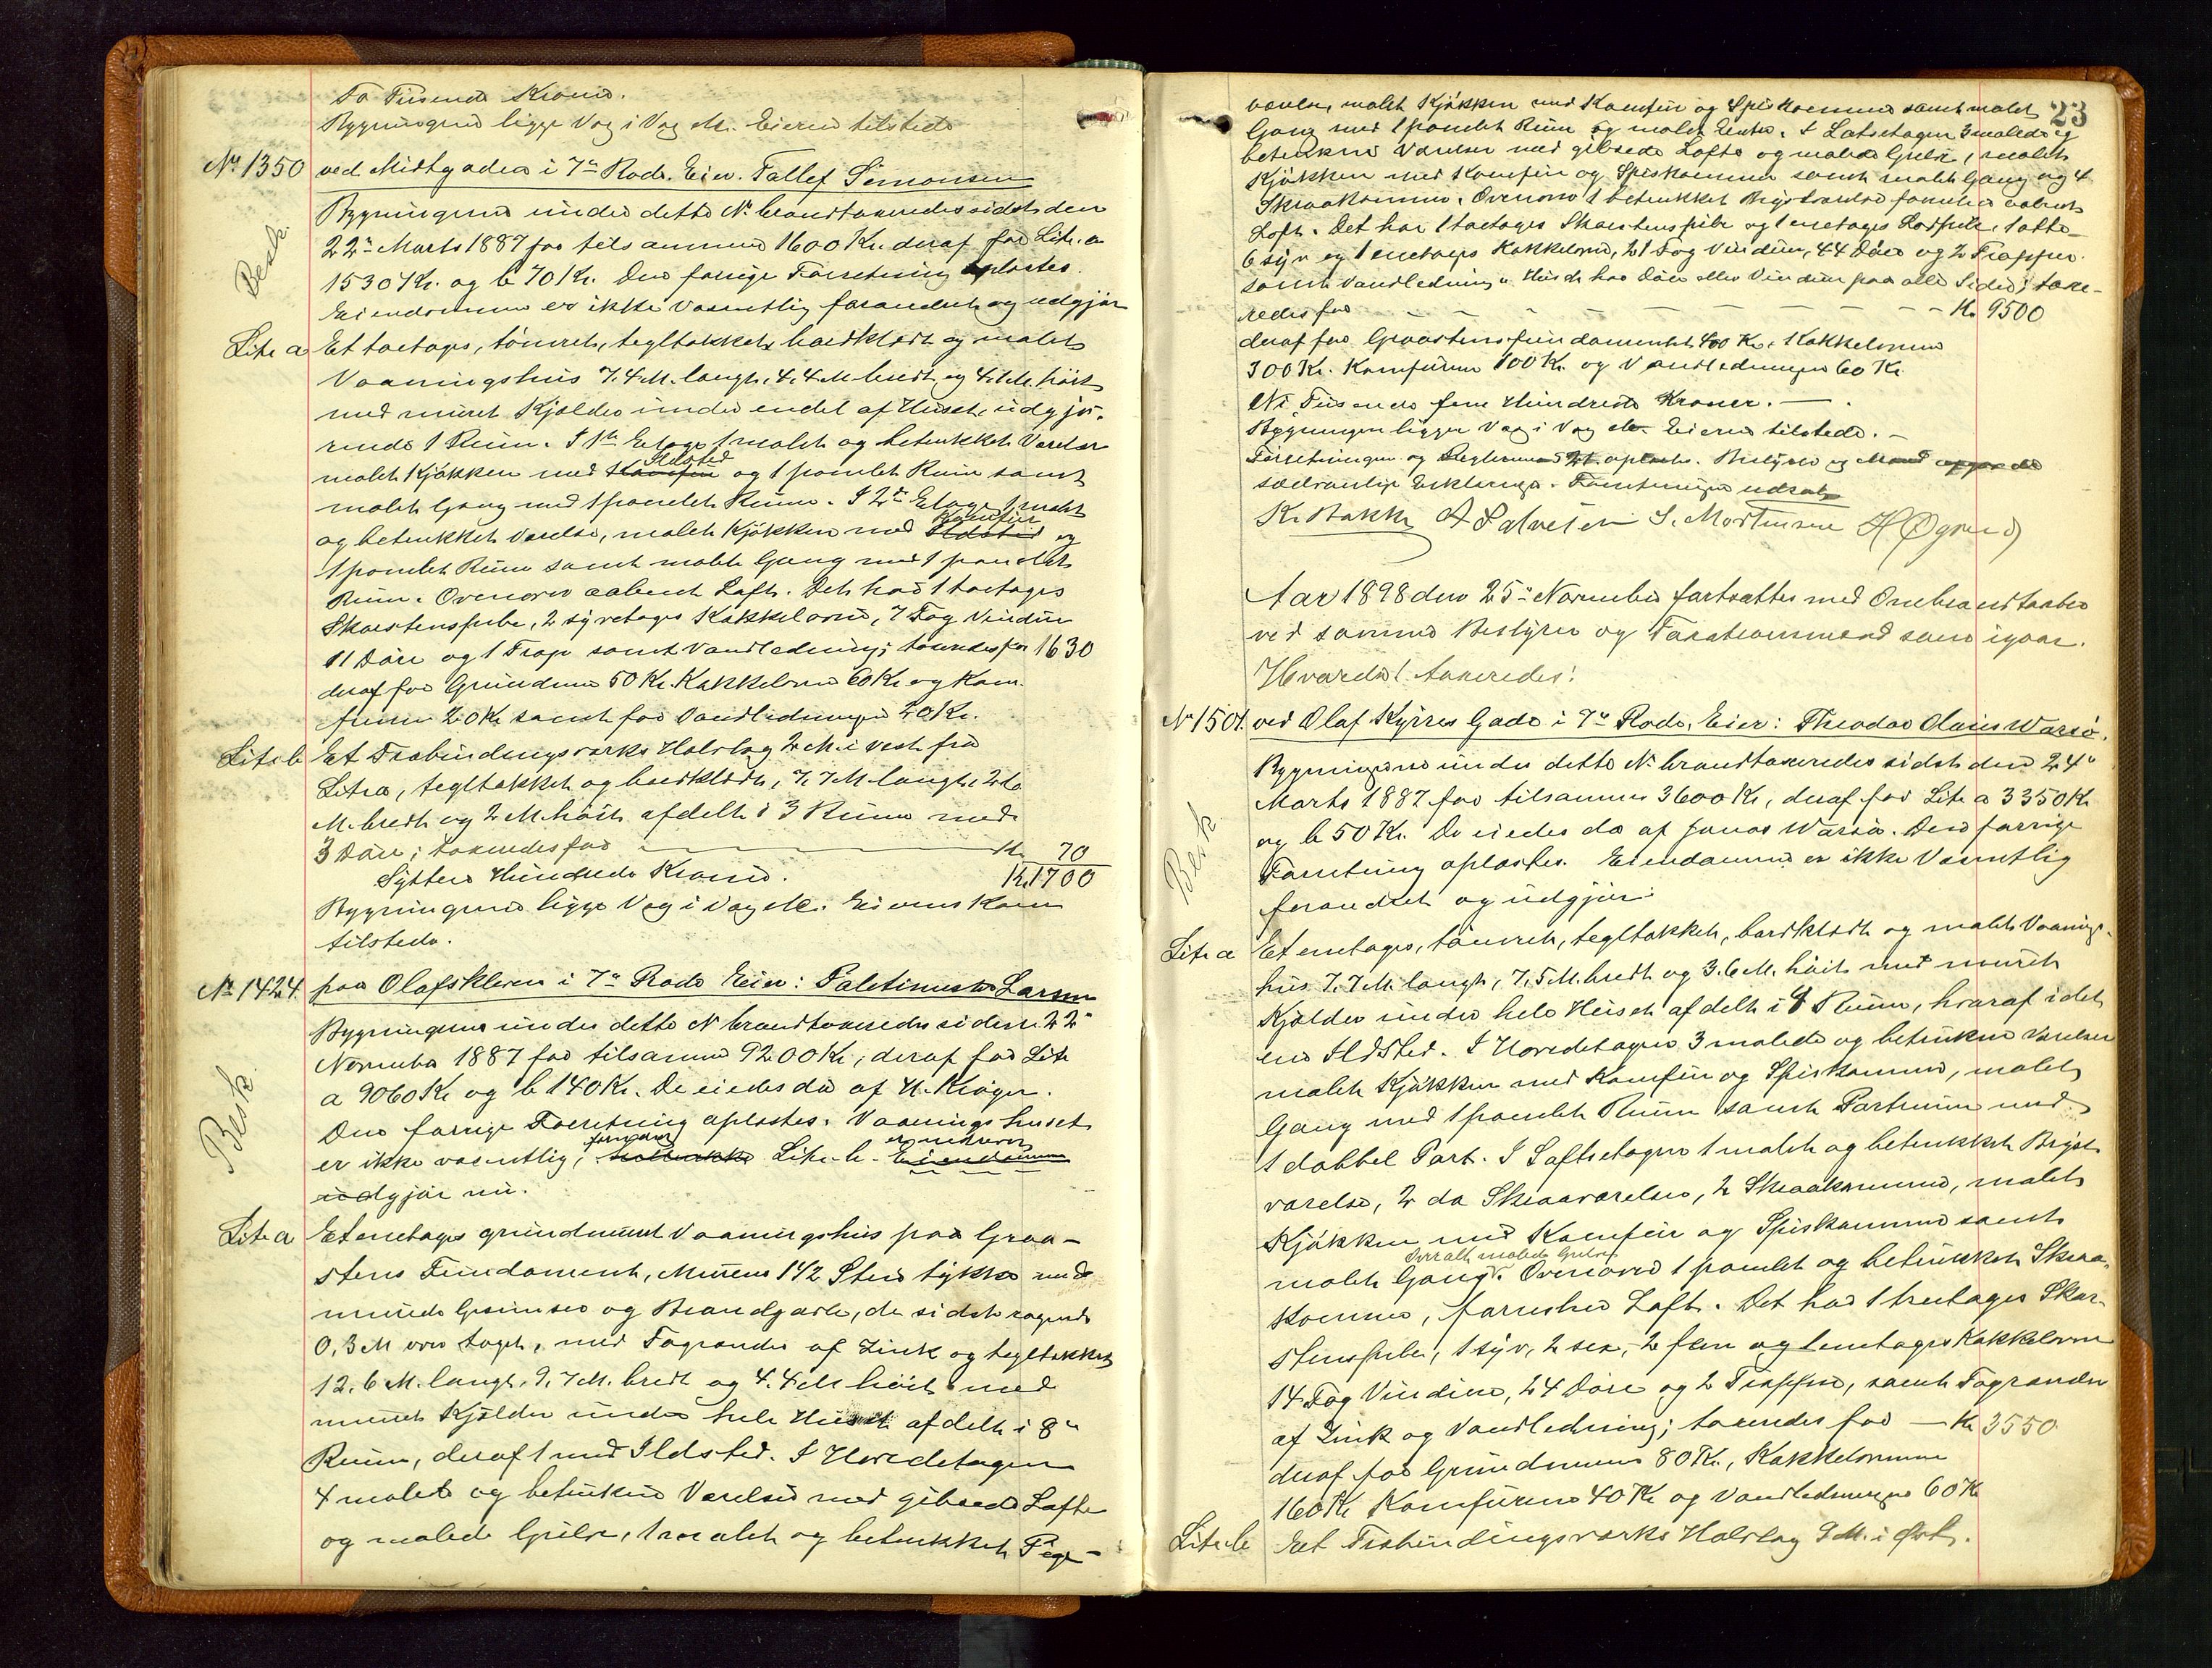 To Tusende Kroner.
Bygningerne ligge Væg i Væg M. Eieren tilstede
No 1350 ved Midtgaden i 7de Rode. Eier: Tallef Simonsen
Besk.
Bygningerne under dette No brandtaxeredes sidst den
22de Marts 1887 for tilsammen 1600 Kr. deraf for Litr. a
1530 Kr. og b 70 Kr. Den forrige Forretning oplæstes.
Eiendommen er ikke væsentlig forandret og udgjør
Litr a Et toetages, tømret, tegltækket, bordklædt og malet
Vaaningshus 7.4 M. langt, 4.4 M bredt og 4.1 M. høit
med muret Kjælder under endel af Huset, udgjø-
rende 1 Rum. I 1ste Etage 1 malet og betrukket Værelse
malet Kjøkken med Komfur Ildsted og 1 panelet Rum samt
malet Gang med 1 panelet Rum. I 2den Etage 1 malet
og betrukket Værelse, malet Kjøkken med Ildsted Komfur og
1 panelet Rum samt malet Gang med 1 panelet
Rum. Ovenover aabent Loft. Det har 1 toetages
Skorstenspibe, 2 syvetages Kakkelovne, 7 Fag Vinduer
11 Døre og 1 Trap samt Vandledning; taxeredes for 1630
deraf for Grunden 50 Kr. Kakkelovne 60 Kr og Kom-
furen 20 Kr samt for Vandledningen 20 Kr.
Litr b Et Træbindingsværks Halvtag 2 M. i Vest fra
Litr a, tegltækket og bordklædt, 7.7 M. langt, 2.2
M. bredt og 2 M. høit afdelt i 3 Rum med
3 Døre; taxeredes for — Kr. 70
Sytten Hundrede Kroner. Kr. 1700
Bygningerne ligge Væg i Væg M. Eierens Kone
tilstede.
No 1424. paa Olafskleven i 7de Rode Eier: Politimester Larsen
Besk.
Bygningerne under dette No brandtaxeredes sidst 22de
November 1887 for tilsammen 9200 Kr; deraf for Litr
a 9060 Kr og b 140 Kr. De eiedes da af H. Krøger.
Den forrige Forretning oplæstes. Vaaningshuset
er ikke væsentlig forandret, Litr. b. er nedrevet Eiendommen
udgjør nu.
Litr a Et enetages grundmuret Vaaningshus paa Graa-
stens Fundament, Murene 1 1/2 Sten tykke med
murede Gesimser og Brandgavle, de sidste ragende
0,3 M over taget, med Tagrender af Zink og tegltækket
12.6 M. langt. 9.7 M. bredt og 4.4 M høit med
muret Kjælder under hele Huset afdelt i 8
Rum, deraf 1 med Ildsted. I Hovedetagen
4 malede og betrukne Værelser med gibsede Lofte
og malede Gulve, 1 malet og betrukket Pige-
23
værelse, malet Kjøkken med Komfur og Spiskammer samt malet
Gang med 1 panelet Rum og malet Entre. I Loftsetagen 3 malede og
betrukne Værelser med gibsede Lofte og malede Gulve, malet
Kjøkken med Komfur og Spiskammer samt malet Gang og 4
Skraakammere. Ovenover 1 betrukket Kvistværelse forøvrigt aabent
Loft. Det har 1 toetages Skorstenspibe og 1 enetages Lodpibe, 1 otte-
6 syv og 1 enetages Kakkelovne, 21 Fag Vinduer, 44 Døre og 2 Trapper
samt Vandledning. Huset har Døre eller Vinduer paa alle Sider; taxe-
redes for — Kr 9500
deraf for Graastensfundamentet 400 Kr. Kakkelovnene
300 Kr. Komfurene 100 Kr. og Vandledningen 60 Kr
Ni Tusende fem Hundrede Kroner. —
Bygningen ligger Væg i Væg M. Eieren tilstede. —
Forretningen og Reglernes oplæstes. Bestyrer og Mænd
sædvanlige Erklæringer. Forretningen udsat
K. Bakke A Salvesen S. Mortensen H Øgrey
Aar 1898 den 25de November fortsattes med Ombrandtaxten
ved samme Bestyrer og Taxationsmænd som igaar.
Hvorda taxeredes:
No 1501. ved Olaf Kyrres Gade i 7de Rode. Eier: Theodor Olaus Warsø.
Besk.
Bygningerne under dette No brandtaxeredes sidst den 24de
Marts 1887 for tilsammen 3600 Kr, deraf for Litr a 3350 Kr
og b 50 Kr. De eiedes da af Jonas Warsø. Den forrige
Forretning oplæstes. Eiendommen er ikke væsentlig
forandret og udgjør:
Litr a Et enetages, tømret, tegltækket, bordklædt og malet Vaanings-
hus 7.7 M. langt, 7.5 M. bredt og 3.6 M. høit med muret
Kjælder under hele Huset afdelt i 4 Rum, hvoraf i det
ene Ildsted. I Hovedetagen 3 malede og betrukne Værelser
malet Kjøkken med Komfur og Spiskammer, malet
Gang med 1 panelet Rum samt Portrum med
1 dobbel Port. I Loftsetagen 1 malet og betrukket Kvist-
værelse, 2 do Skraaværelser, 2 Skraakammere, malet
Kjøkken med Komfur og Spiskammer samt
malet Gang. Overalt malede Gulve Ovenover 1 panelet og betrukket Skraa-
kammer, forresten Loft. Det har 1 treetages Skor-
stenspibe, 1 syv, 2 sex, 2 fem og 1 enetages Kakkelovne
14 Fag Vinduer, 24 Døre og 2 Trapper, samt Tagrender
af Zink og Vandledning; taxeredes for — Kr 3550
deraf for Grundmuren 80 Kr., Kakkelovnene
160 Kr Komfurene 40 Kr og Vandledningen 60 Kr
Litr. b Et Træbindingsværks Halvtag 9 M. i Øst.